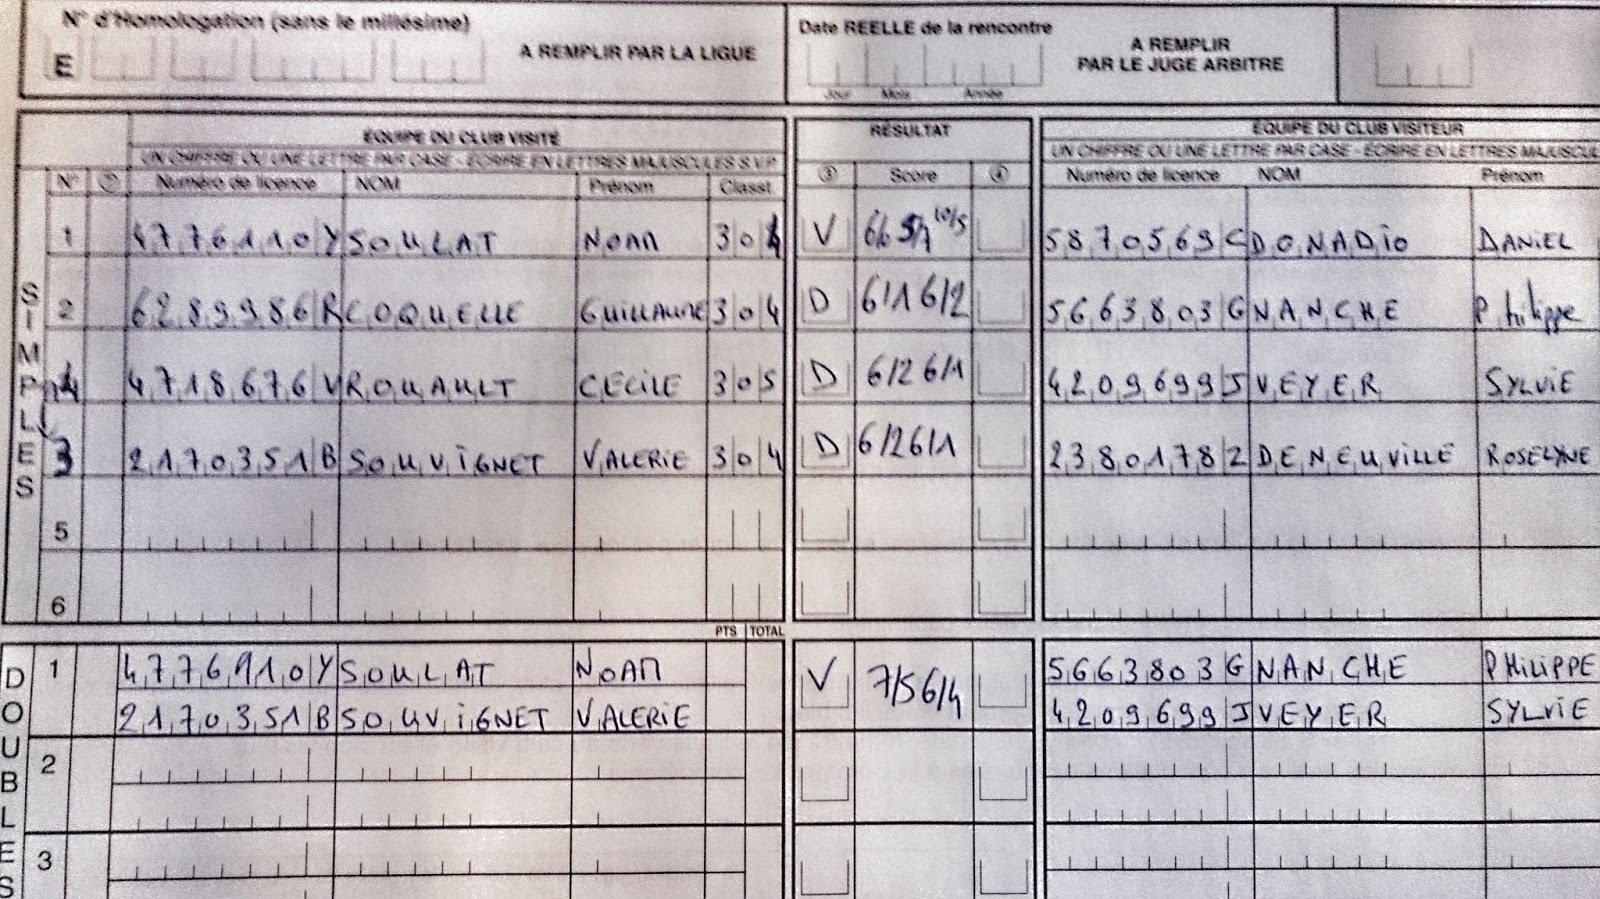 N° d'Homologation (sans le millésime)
E
A REMPLIR PAR LA LIGUE
Date REELLE de la rencontre
Jour Mois Année
A REMPLIR
PAR LE JUGE ARBITRE
ÉQUIPE DU CLUB VISITÉ
RÉSULTAT
ÉQUIPE DU CLUB VISITEUR
UN CHIFFRE OU UNE LETTRE PAR CASE - ÉCRIRE EN LETTRES MAJUSCULES S.V.P.
UN CHIFFRE OU UNE LETTRE PAR CASE - ÉCRIRE EN LETTRES MAJUSCUL
N° ② Numéro de licence NOM Prénom Classt. ③ Score ④ Numéro de licence NOM Prénom
SIMPLES
1 4776110Y SOULAT NOAM 30 V 6/ 10/5 5870569C DONADIO DANIEL
2 6289986R COQUELLE GUILLAUME 304 D 6/1 6/2 5663803G NANCHE Philippe
4 4718676V ROUAULT CECILE 305 D 6/2 6/1 4209699J VEYER SYLVIE
3 2170351B SOUVIGNET VALERIE 304 D 6/2 6/1 2380178Z DENEUVILLE ROSELYNE
5
6
PTS TOTAL
DOUBLES
1 4776910Y SOULAT NOAM V 7/5 6/4 5663803G NANCHE PHILIPPE
2170351B SOUVIGNET VALERIE 4209699J VEYER SYLVIE
2
3